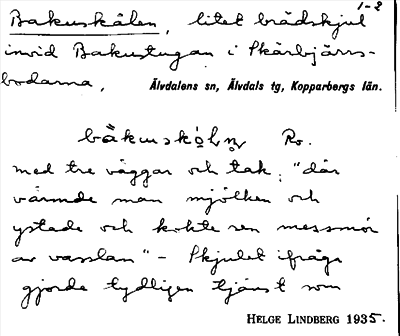 1-2
Bakuskålen, litet brädskjul
invid Bakustugan i Skärbjörns-
bodarna, Älvdalens sn, Älvdals tg, Kopparbergs län.
Ro.
med tre väggar och tak; "där
värmde man mjölken och
ystade och kokte sen messmör
av vasslan" – Skjulet ifråga
gjorde tydligen tjänst som
HELGE LINDBERG 1935.